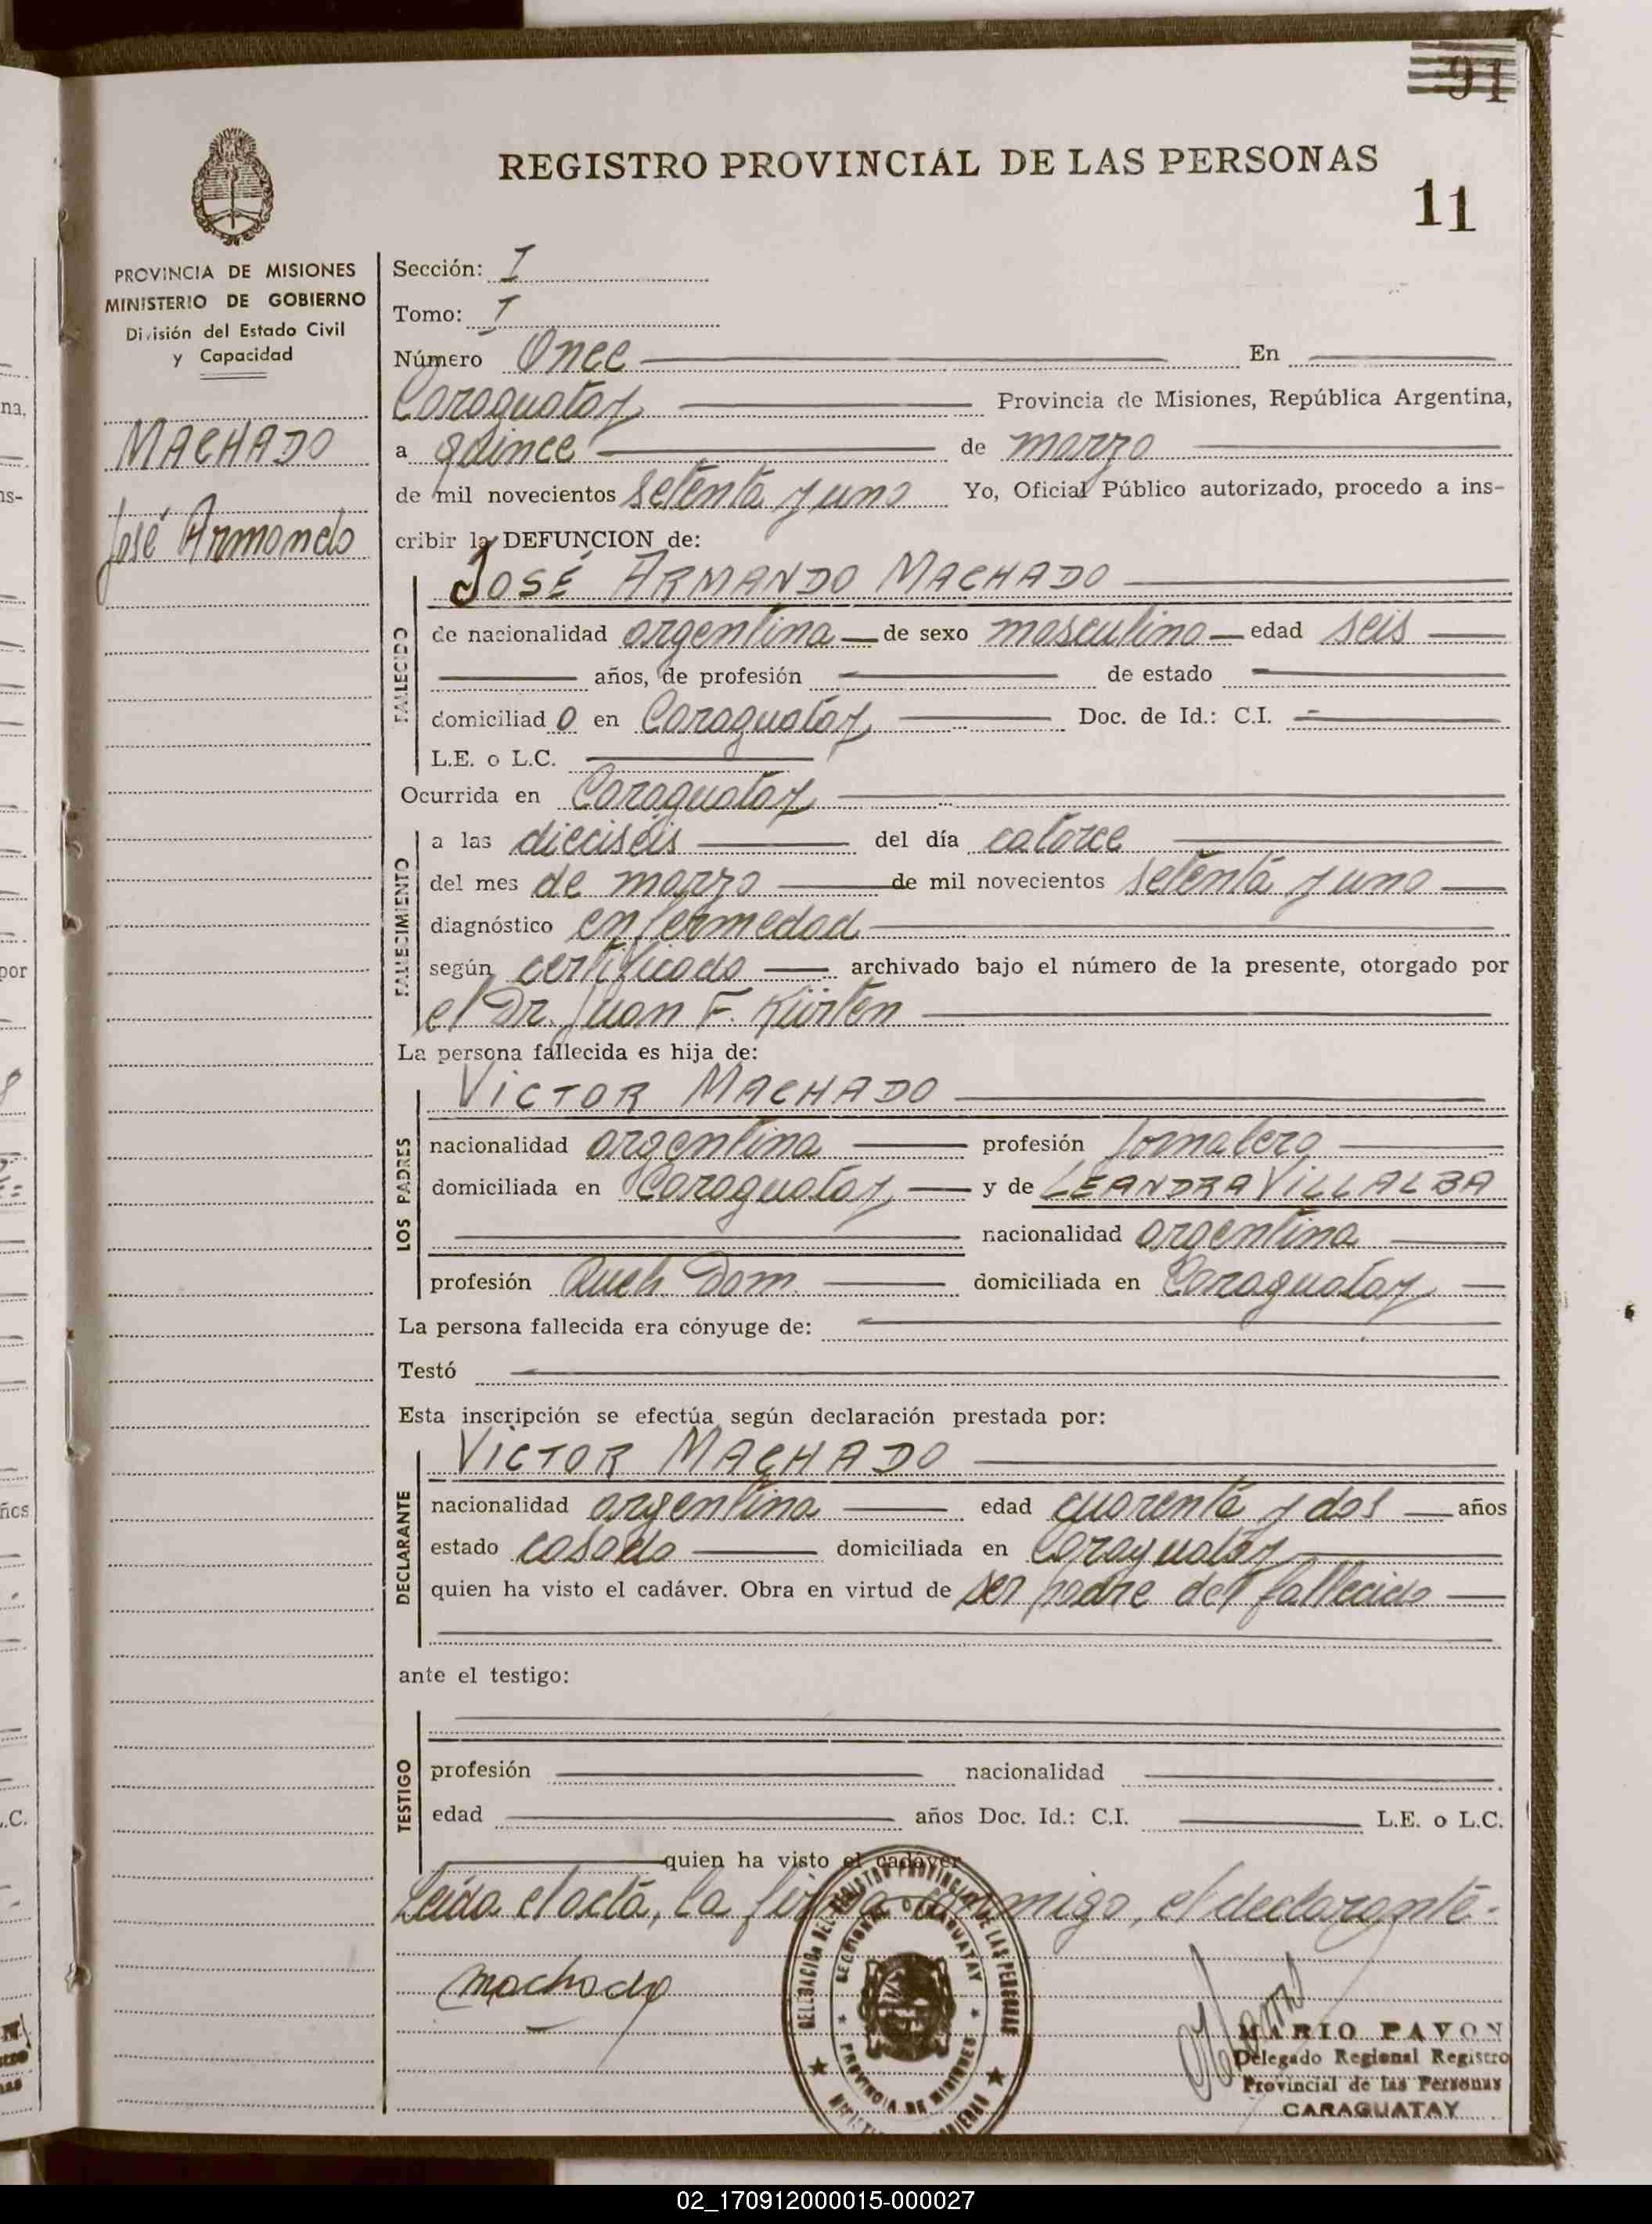 91
REGISTRO PROVINCIAL DE LAS PERSONAS
11
PROVINCIA DE MISIONES
MINISTERIO DE GOBIERNO
División del Estado Civil
y Capacidad
MACHADO
José Armando
Sección: I
Tomo: I
Número Once En
Caraguatay Provincia de Misiones, República Argentina,
a quince de marzo
de mil novecientos setenta y uno Yo, Oficial Público autorizado, procedo a ins-
cribir la DEFUNCION de:
JOSÉ ARMANDO MACHADO
FALLECIDO
de nacionalidad argentina de sexo masculino edad seis
años, de profesión de estado
domiciliad o en Caraguatay Doc. de Id.: C.I.
L.E. o L.C.
Ocurrida en Caraguatay
FALLECIMIENTO
a las dieciseis del día catorce
del mes de marzo de mil novecientos setenta y uno
diagnóstico enfermedad
según certificado archivado bajo el número de la presente, otorgado por
el Dr. Juan F. Kürten
La persona fallecida es hija de:
VICTOR MACHADO
LOS PADRES
nacionalidad argentina profesión Jornalero
domiciliada en Caraguatay y de LEANDRA VILLALBA
nacionalidad argentina
profesión Queh. Dom. domiciliada en Caraguatay
La persona fallecida era cónyuge de:
Testó
Esta inscripción se efectúa según declaración prestada por:
VICTOR MACHADO
DECLARANTE
nacionalidad argentina edad cuarenta y dos años
estado casado domiciliada en Caraguatay
quien ha visto el cadáver. Obra en virtud de ser padre del fallecido
ante el testigo:
TESTIGO
profesión nacionalidad
edad años Doc. Id.: C.I. L.E. o L.C.
quien ha visto el cadáver
Leída el acta, la firma conmigo, el declarante.
machado
SECCIONAL CARAGUATAY
PROVINCIA DE MISIONES
MARIO PAVON
Delegado Regional Registro
Provincial de las Personas
CARAGUATAY
02_170912000015-000027